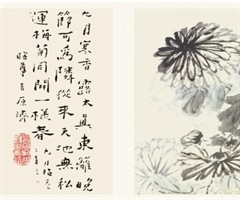 九月寒香露太真東籬晚
節可為隣從來天地無私
運梅菊同開一樣春
原濟